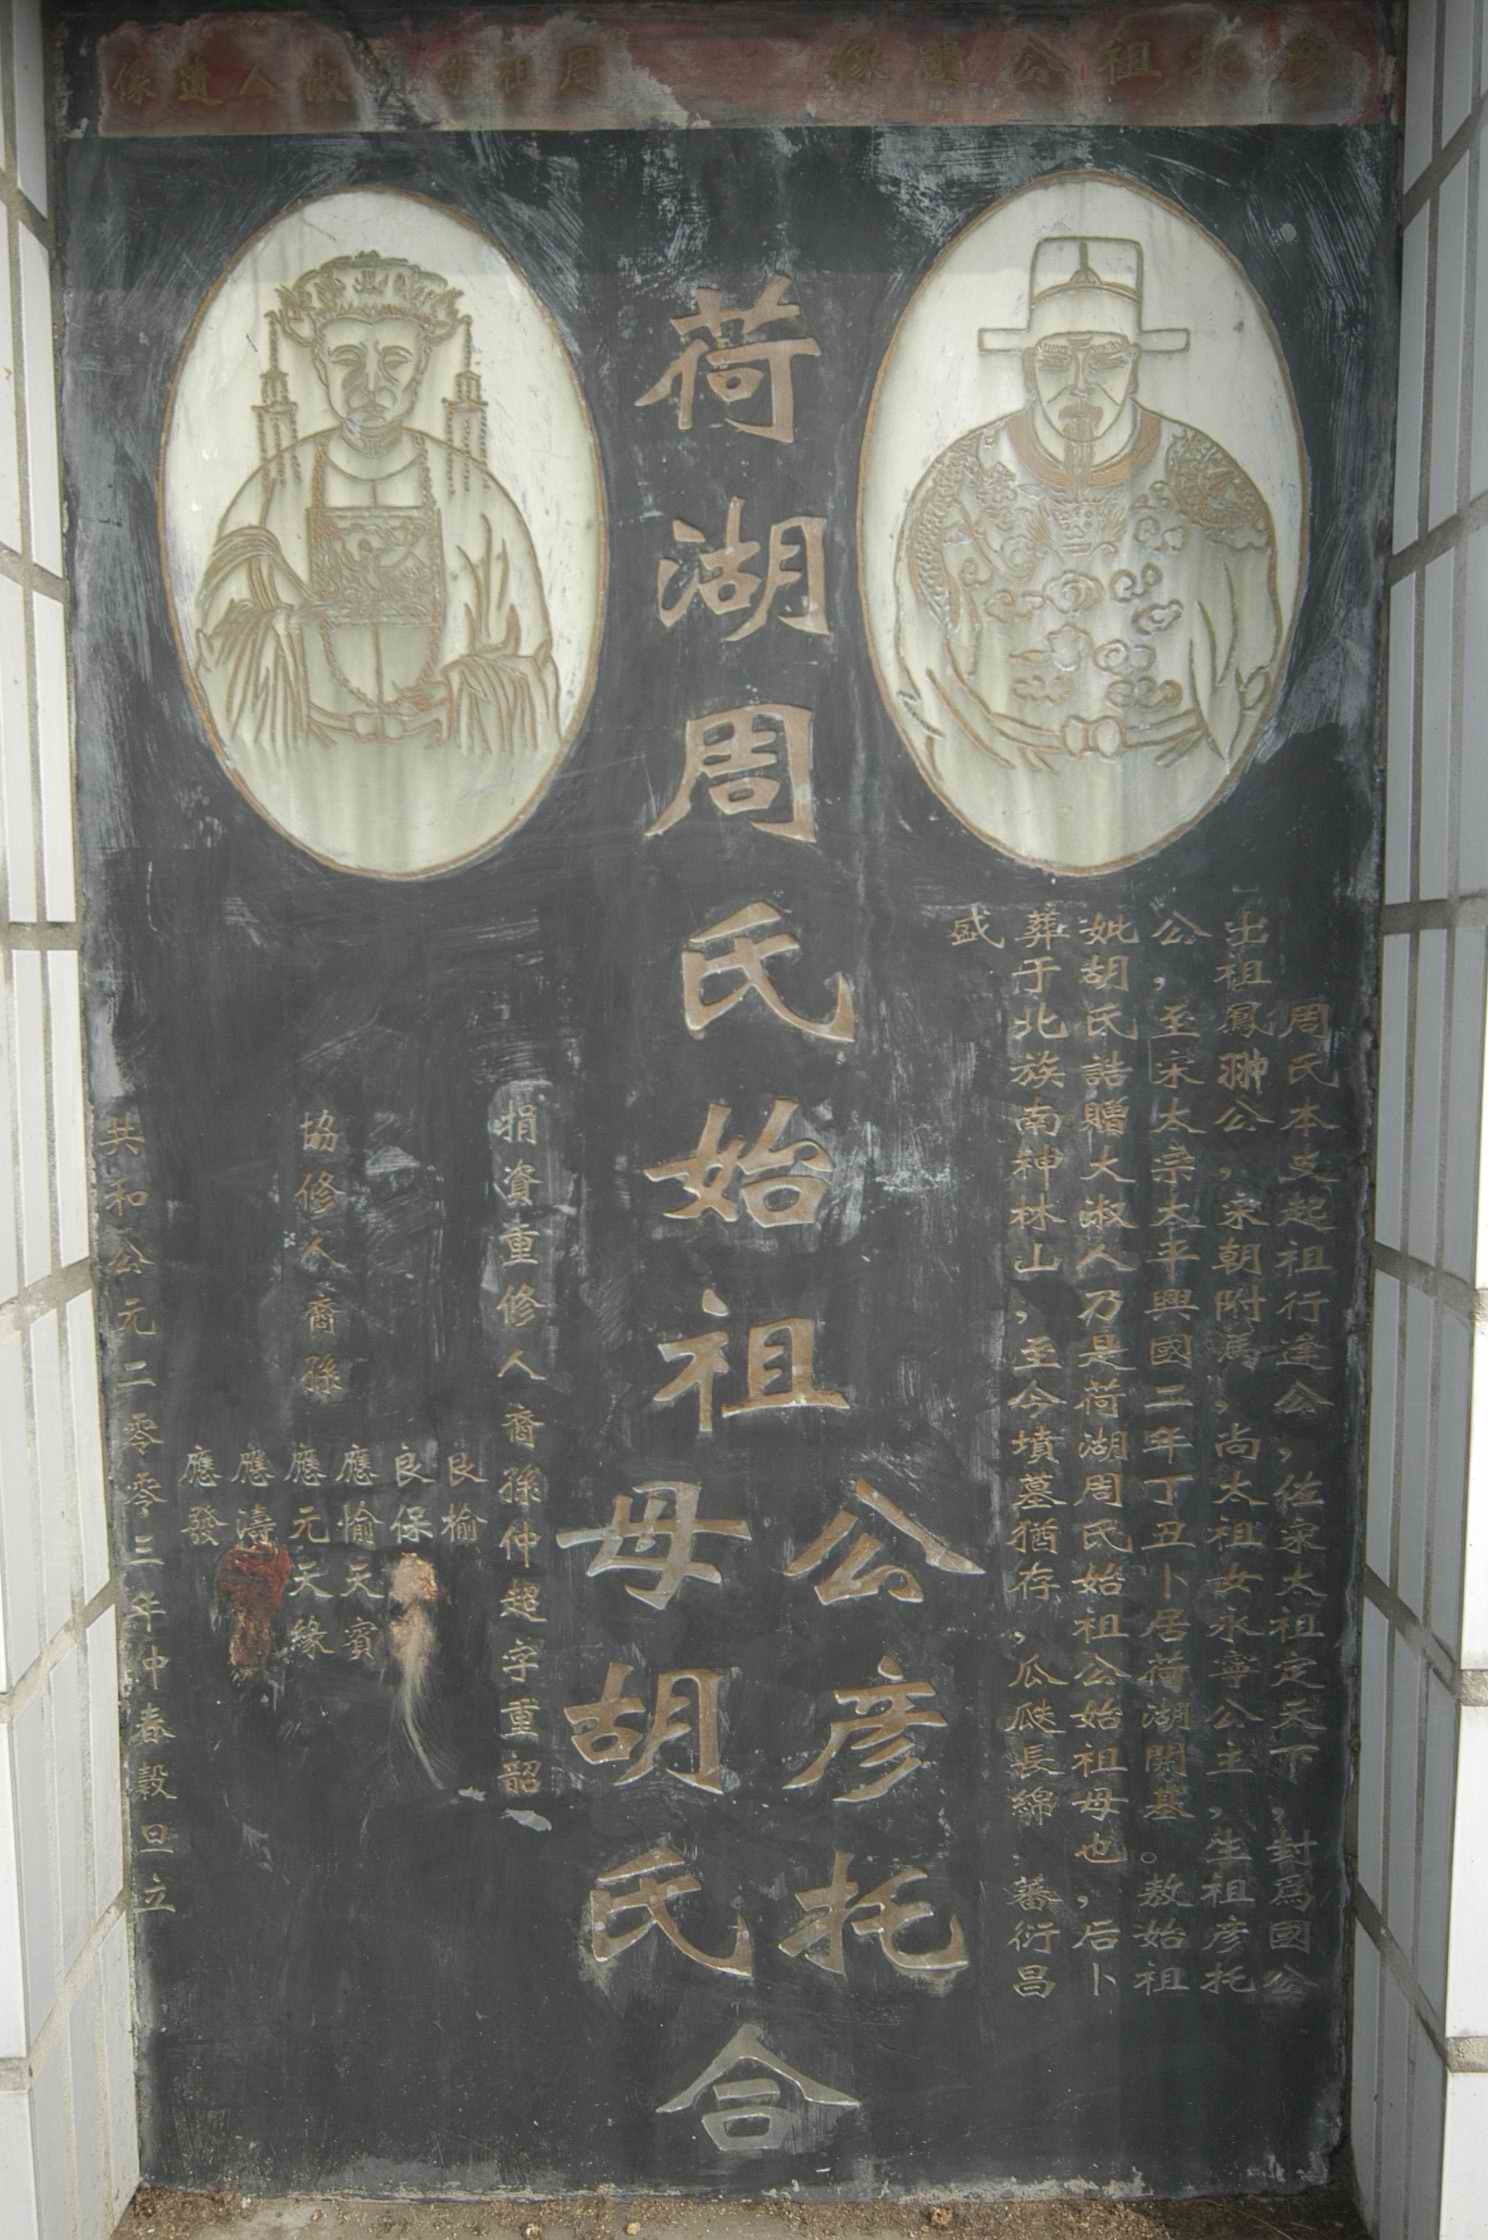 彥托祖公遺像
周祖母胡淑人遺像
周氏本支起祖行逢公，佐宋太祖定天下，封爲國公
出祖鳳翀公，宋朝附馬，尚太祖女永寧公主，生祖彥托
公，至宋太宗太平興國二年丁丑卜居荷湖開基。敖始祖
妣胡氏誥贈大淑人乃是荷湖周氏始祖公始祖母也，后卜
葬于北族南神林山，至今墳墓猶存，瓜瓞長綿 蕃衍昌
盛
荷湖周氏始祖
公彥托
母胡氏
合
捐資重修人裔孫仲超字重韶
協修人裔孫
良榆
良保
應愉天賓
應元天緣
應濤
應發
共和公元二零零三年仲春穀旦立